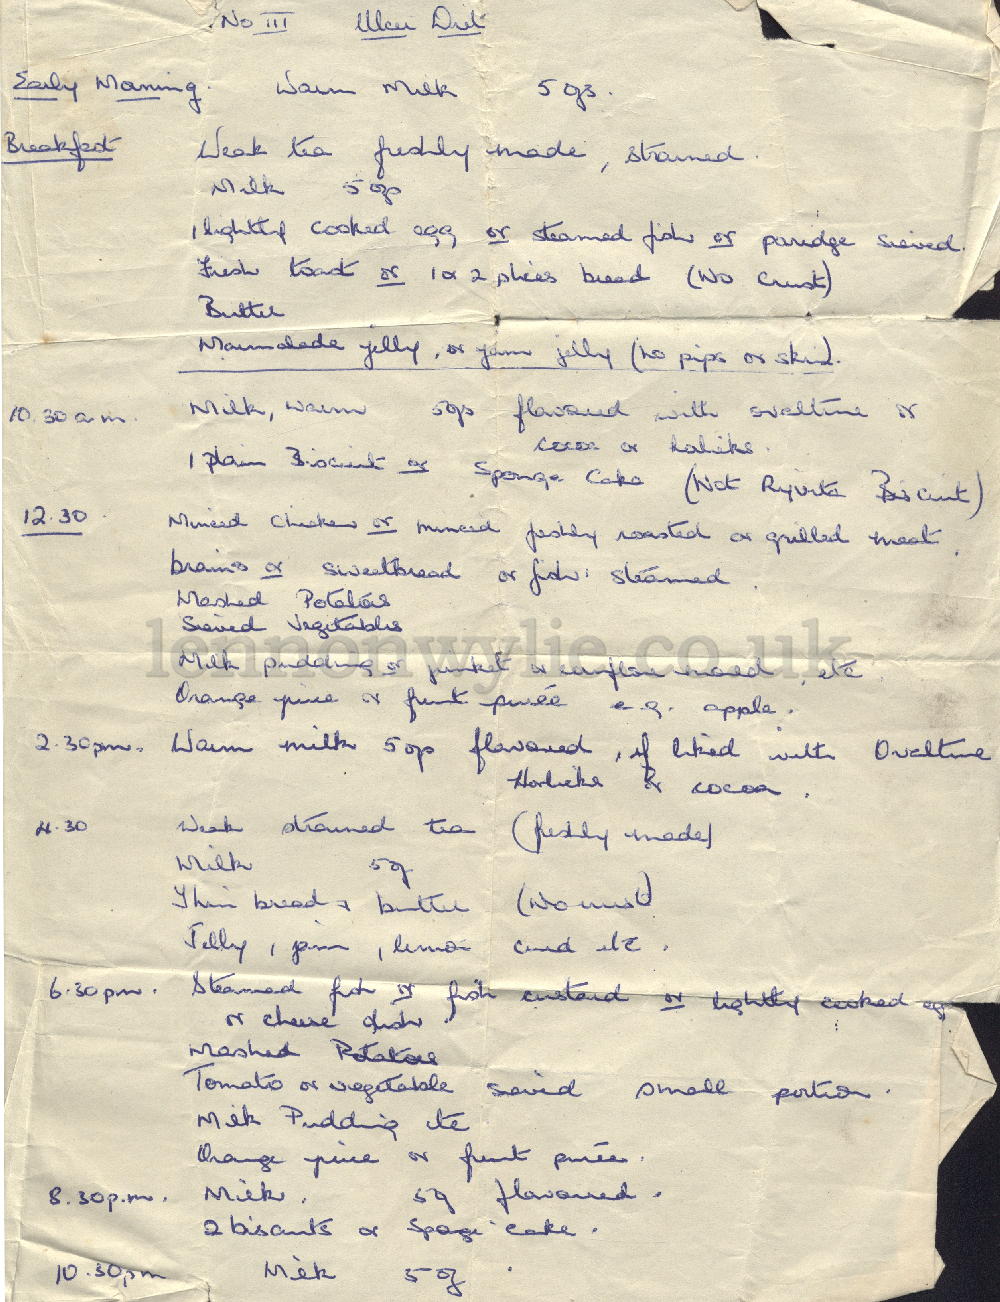 No III Ulcer Diet
Early Morning. Warm Milk 5 ozs.
Breakfast Weak tea freshly made, strained.
Milk 5 ozs
1 lightly cooked egg or steamed fish or porridge sieved.
Fresh toast or 1 or 2 slices bread (No Crust)
Butter
Marmalade jelly, or jam jelly (no pips or skin).
10.30 a.m. Milk, warm 5ozs flavoured with ovaltine or
cocoa or horlicks.
1 plain Biscuit or Sponge Cake (Not Ryvita Biscuit)
12.30 Minced chicken or minced freshly roasted or grilled meat.
brains or sweetbread or fish: steamed.
Mashed Potatoes
Sieved Vegetables
lennonwylie.co.uk
Milk pudding or junket or cornflour mould, etc
Orange juice or fruit purée e.g. apple.
2.30pm. Warm milk 5 ozs flavoured, if liked with Ovaltine
Horlicks or cocoa.
4.30 Weak strained tea (freshly made)
Milk 5oz
Thin bread & butter (No crust)
Jelly, jam, lemon curd etc.
6.30pm. Steamed fish or fish custard or lightly cooked egg
or cheese dish.
Mashed Potatoes
Tomato or vegetable sieved small portion.
Milk Pudding etc
Orange juice or fruit purée.
8.30p.m. Milk. 5oz flavoured.
2 biscuits or Sponge cake.
10.30pm Milk 5oz.